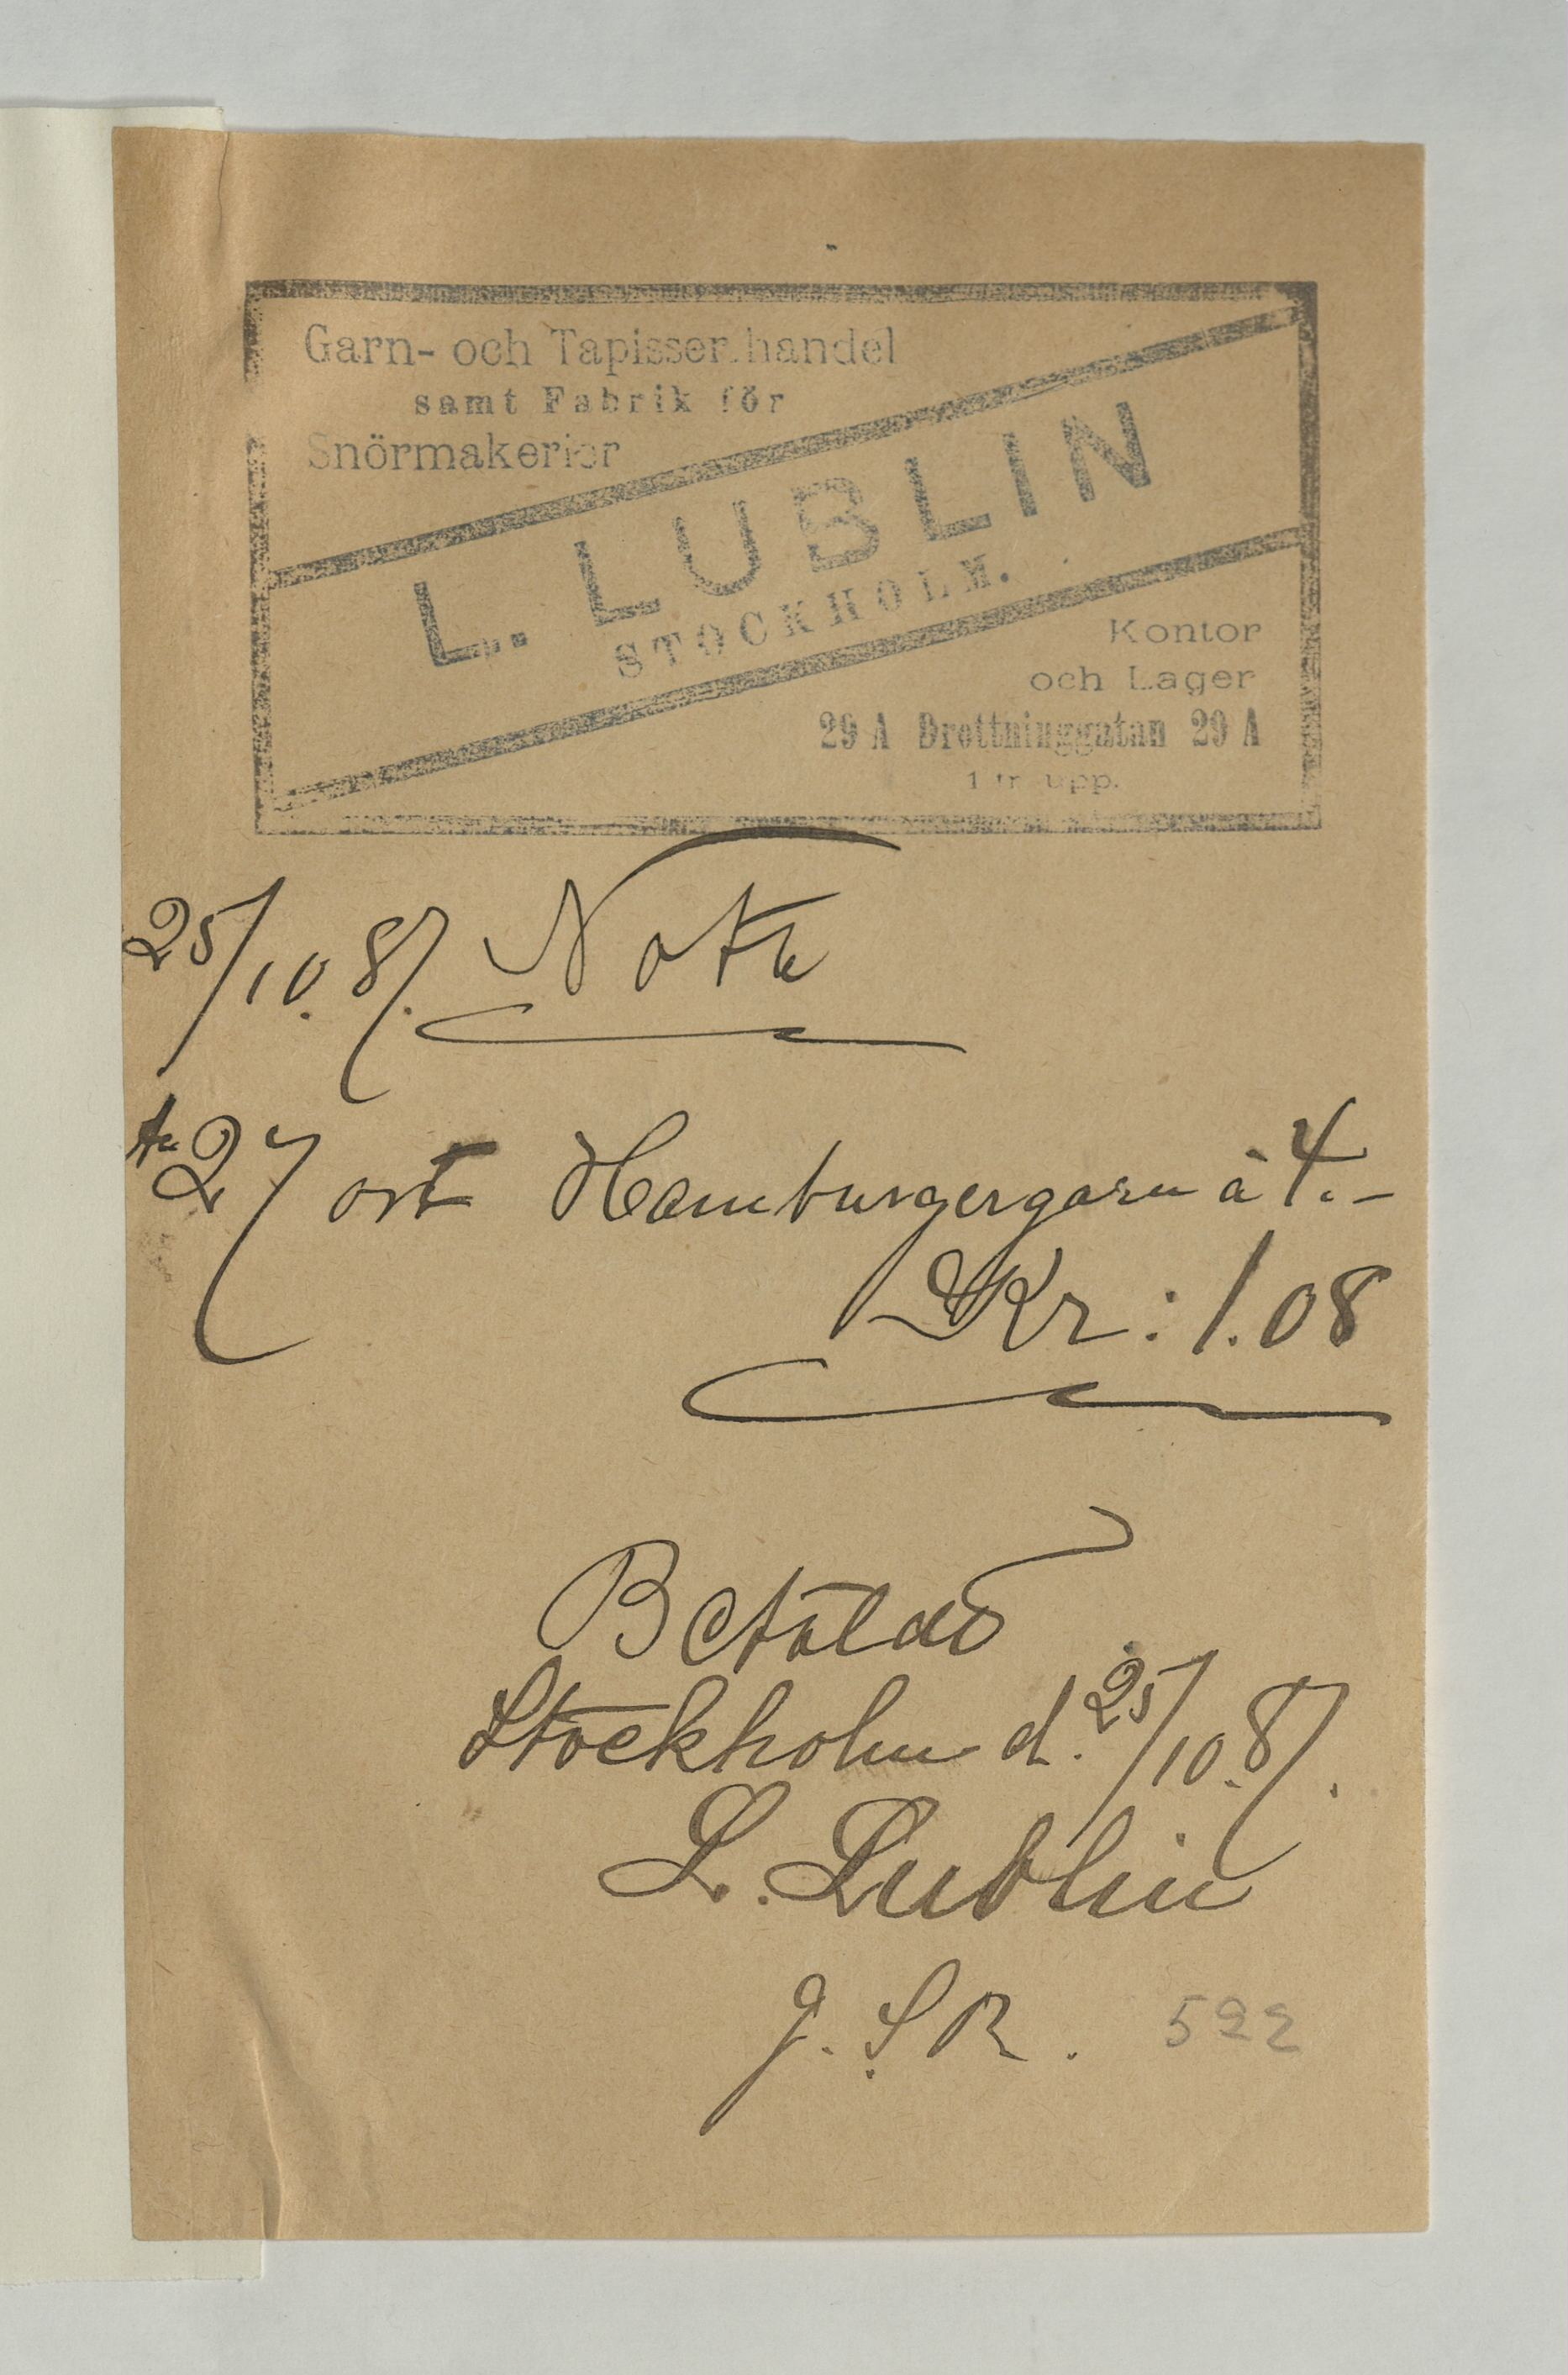 Garn- och Tapisserihandel
samt Fabrik för
Snörmakerier
L. LUBLIN
STOCKHOLM.
Kontor
och Lager
29 A Drottninggatan 29 A
1 tr. upp.
25/10.87. Nota
27 ort Hamburgergarn à 4.-
Kr: 1.08
Betaldt
Stockholm d. 25/10.87.
L. Lublin
g. S R.
522